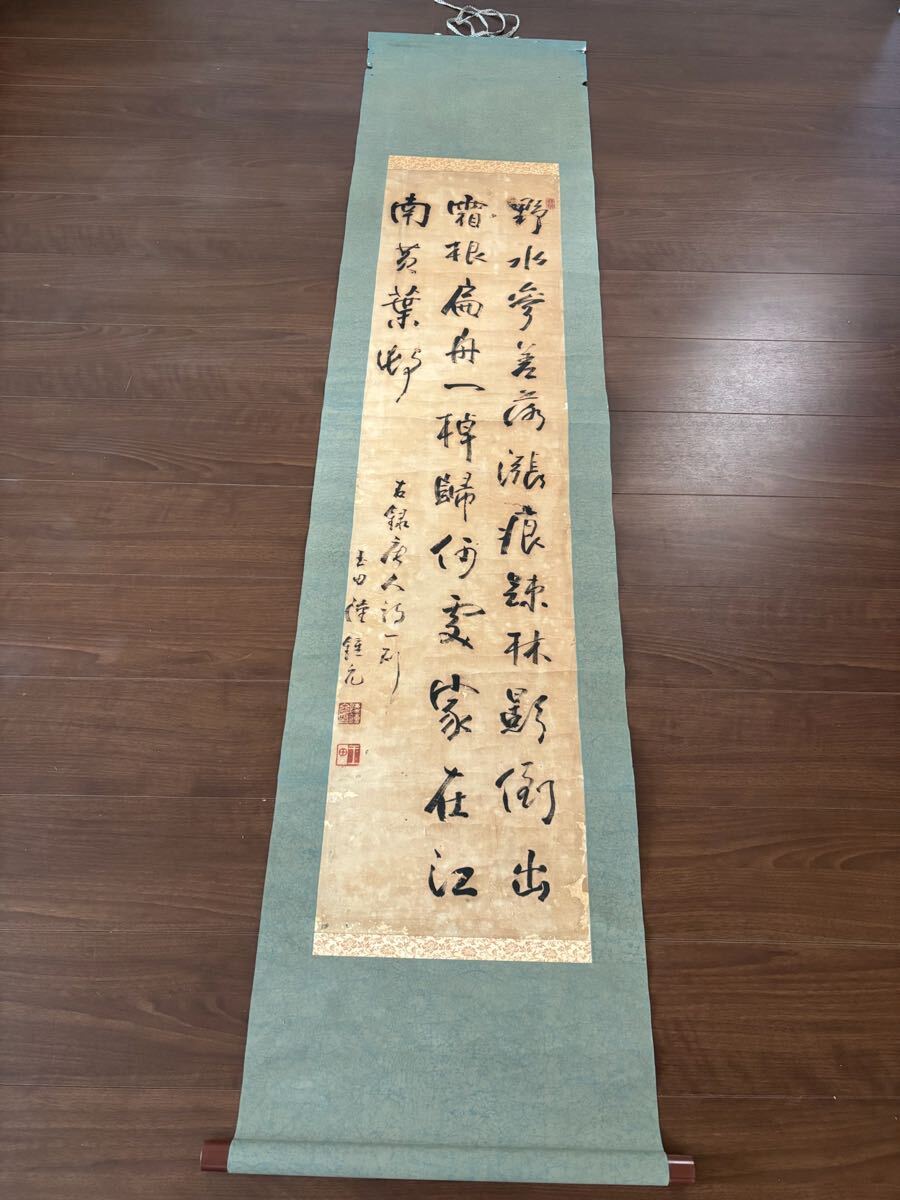 野水參差落漲痕疎林影倒出
霜根扁舟一棹歸何處家在江
南黃葉邨
右録唐人詩一則
玉田 鍾元
玉田